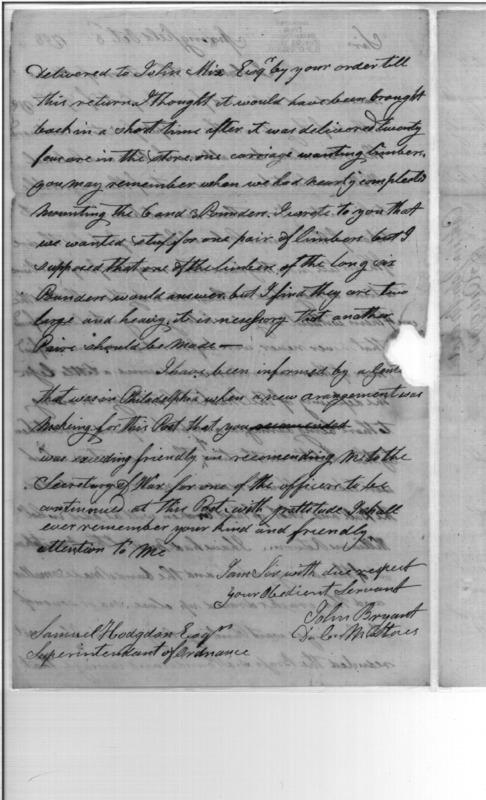 Delivered to John Mix Esqr by your order till
this return I thought it would have been brought
back in a short time after it was delivered twenty
four are in the Store, one carriage wanting limbers,
you may remember when we had nearly compleat'd
mounting the 6 and 3 Pounders. I wrote to you that
we wanted stuff for one pair of limbers but I
supposed that one of the limbers of the long six
Pounders would answer, but I find they are two
large and heavy, it is nessesory that another
Paire should be made —
I have been informed by a Gent
that was in Philadelphia when a new arangement was
Making for this Post that you recomended
was exceeding friendly in recomending Me to the
Secretary of War for one of the officers to be
continued at this Post, with grattitude I shall
ever remember your kind and friendly
attention to Me
I am Sir with due respect
your Obedient Servant
John Bryant
D. Com. M. Stores
Samuel Hodgdon Esqr
Superintendant of Ordnance